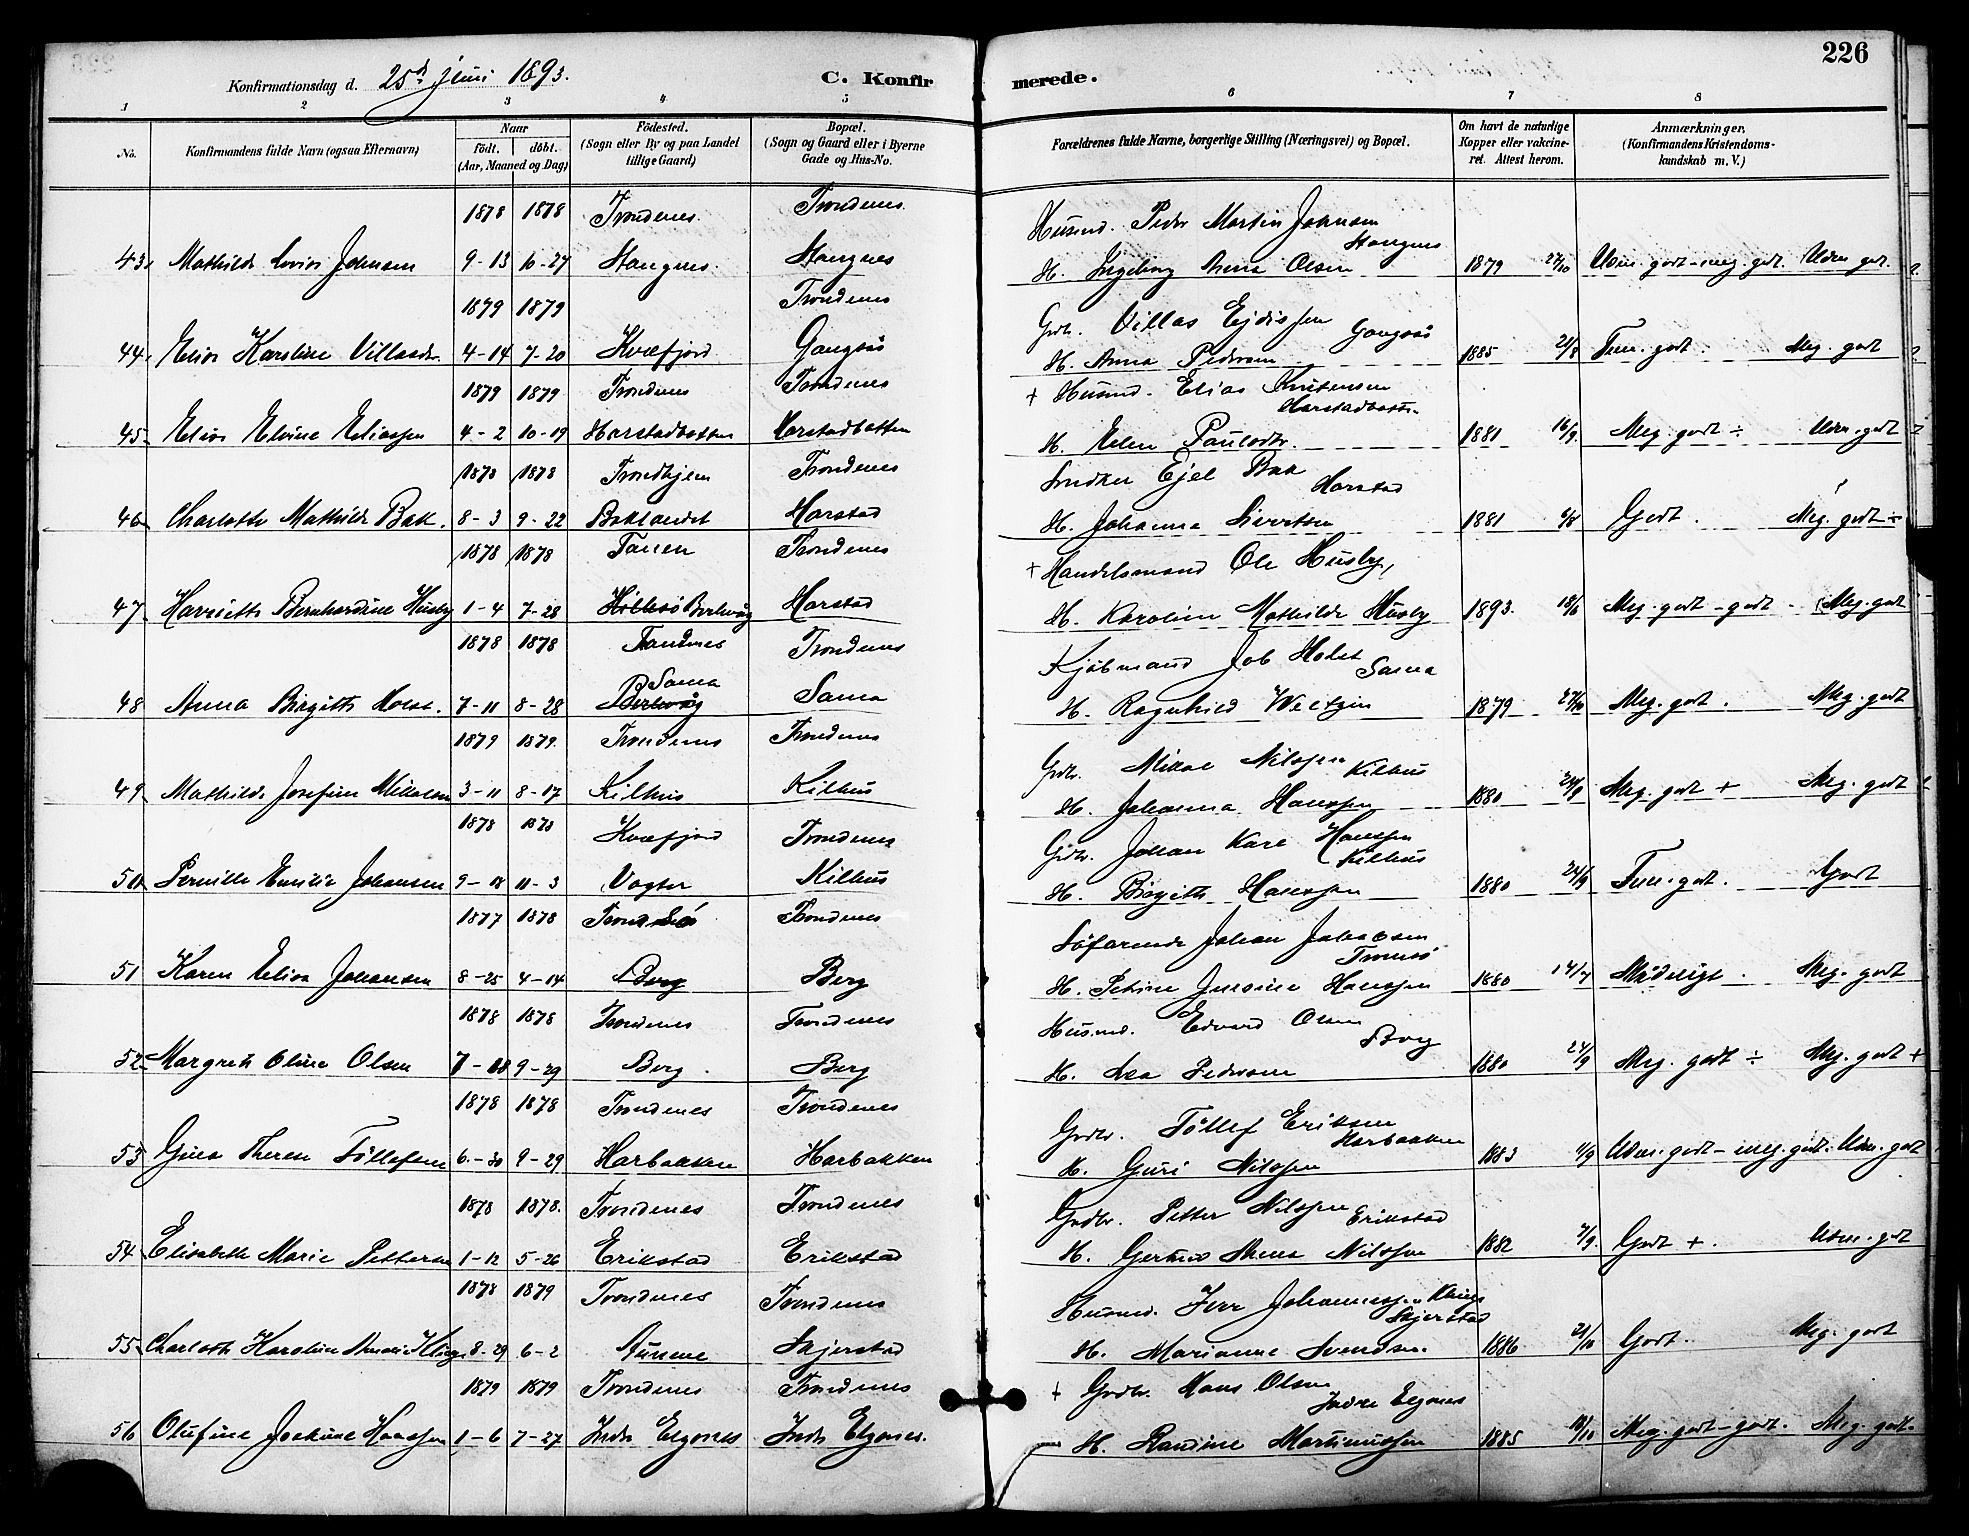 226
Konfirmationsdag d. 25d juni 1893. C. Konfirmerede.
1 2 3 4 5 6 7 8
No. Konfirmandens fulde Navn (ogsaa Efternavn) Naar födt. döbt. (Aar, Maaned og Dag) Födested. (Sogn eller By og paa Landet tillige Gaard) Bopæl. (Sogn og Gaard eller i Byerne Gade og Hus-No. Forældrenes fulde Navne, borgerlige Stilling (Næringsvei) og Bopæl. Om havt de naturlige Kopper eller vakcineret. Attest herom. Anmærkninger. (Konfirmandens Kristendomskundskab m. V.)
1878 1878 Trondenes Trondenes Husmd. Peder Martin Johnsen
43. Mathilde Johnsen 9-13 10-27 Stangnes Stangnes Stangnes H. Ingeborg Anna Olsen 1879 27/10 Udm. godt - meg. godt. Udm. godt.
1879 1879 Trondenes Grdbr. Villas Ejdissen Gangsås
44. Elise Karoline Villasdr. 4-14 7-20 Kvæfjord Gangsås H. Anna Pedersen 1885 21/8 Tem. godt. Meg. godt
1879 1879 Trondenes Trondenes + Husmd. Elias Kristensen Harstadbotten
45. Elise Elvine Eliassen 4-2 10-19 Harstadbotten Harstadbotten H. Elen Paulsdtr. 1881 16/9 Meg. godt ÷ Udm. godt
1878 1878 Trondhjem Trondenes Snedker Ejel Bak Harstad
46. Charlotte Mathilde Bak. 8-3 9-22 Baklandet Harstad H. Johanna Sivertsen 1881 6/8 Godt. Meg. godt ÷
1878 1878 Tanen Trondenes + Handelsmand Ole Husby,
47. Harriette Bernhardine Husby 1-4 7-28 Berlevåg Harstad H. Karoline Mathilde Husby 1893. 18/6 Meg. godt - godt - Meg. godt
1878 1878 Trondenes Kjöbmand Job Holst Sama
48. Anna Birgitte Holst. 7-11 8-28 Sama Berlevåg Sama H. Ragnhild Weltzin 1879 27/10 Meg. godt. Meg. godt
1879 1879. Trondenes Trondenes Grdbr. Mikal Nilssen Kilhus
49. Mathilde Josefine Mikalsen 3-11 8-17 Kilhus Kilhus H. Johanna Hanssen 1880 24/9 Meg. godt + Meg. godt
1878 1878 Kvæfjord Trondenes Grdbr. Johan Karl Hanssen Kilhus
50. Pernille Emilie Johansen 9-18 11-3 Vogter Kilhus H. Birgitte Hanssen 1880 24/9 Tem. godt. Godt
1877 1878 Trondenes Söfarende Johan Jakobsen Tromsö
51 Karen Elisa Johansen 8-25 4-14 Berg Berg H. Petrine Hanssen 1880 Mådeligt. Meg. godt
1878 1878 Trondenes Trondenes Husmd. Edvard Olsen Berg
52. Margrete Oline Olsen 9-29 Berg. Berg H. Lea Pedersen 1880 24/9 Meg. godt ÷ Meg. godt +
1878 1878 Trondenes Trondenes Grdbr. Töllef Eriksen Harbakken
53. Gina Therese Töllefsen 6-30 9-29 Harbakken Harbakken H. Guri Nilssen 1883 Udm. godt - meg. godt. Udm. godt
1878 1878. Trondenes Trondenes Grdbr. Petter Nilssen Erikstad
54. Elisabeth Marie Pettersen 1-12 5-26 Erikstad Erikstad H. Gertrud Anna Nilssen 1882 7/9. Godt +. Udm. godt
1878 1879 Trondenes Trondenes Husmd. Jörr Johannessen Kling Skjerstad
55. Charlotte Karoline Amalie Kling 8-29 6-2 Aunene Skjerstad H. Marianne Svendsen. 1886 21/10 Godt. Meg. godt
1879 1879 Trondenes Trondenes + Grdbr. Hans Olsen Indre Elgsnes
56 Olufine Joakime Hanssen 1-6 7-27 Indre Elgsnes Indre Elgsnes. H. Randine Martinussen 1885 Meg. godt - godt. Meg. godt.